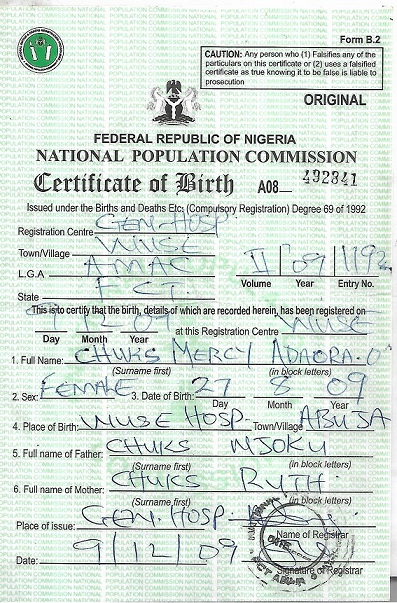 Form B.2
CAUTION: Any person who (1) Falsifies any of the
particulars on this certificate or (2) uses a falsified
certificate as true knowing it to be false is liable to
prosecution
ORIGINAL
FEDERAL REPUBLIC OF NIGERIA
NATIONAL POPULATION COMMISSION
Certificate of Birth A08— 492841
Issued under the Births and Deaths Etc; (Compulsory Registration) Degree 69 of 1992
Registration Centre GEN. HOSP.
Town/Village WUSE
L.G.A AMAC II 09 1192
Volume Year Entry No.
State F.C.T.
This is to certify that the birth, details of which are recorded herein, has been registered on
9 12 09 at this Registration Centre WUSE
Day Month Year
1. Full Name: CHUKS MERCY ADAORA.
(Surname first) (in block letters)
2. Sex: FEMALE 3. Date of Birth: 27 8 09
Day Month Year
4. Place of Birth: WUSE HOSP. Town/Village ABUJA
5. Full name of Father: CHUKS NJOKU
(Surname first) (in block letters)
6. Full name of Mother: CHUKS RUTH
(Surname first) (in block letters)
Place of issue: GEN. HOSP.
Name of Registrar
Date: 9/12/09
Signature of Registrar